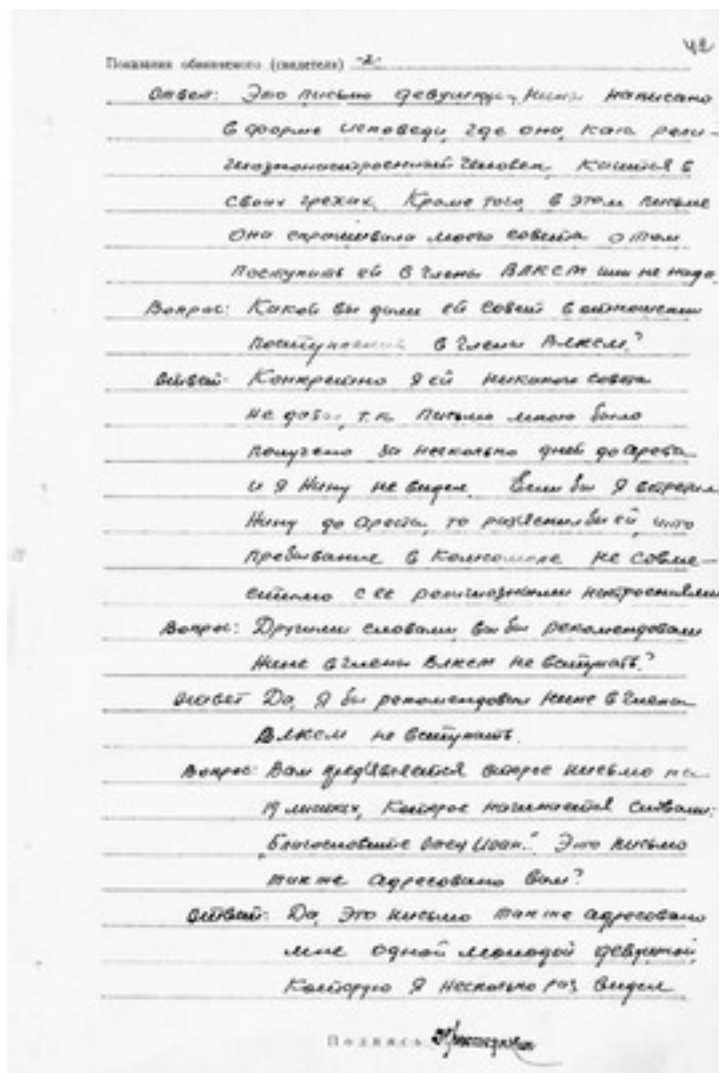 42
Показания обвиняемого (свидетеля) -2-
Ответ: Это письмо девушки Нины написано
в форме исповеди, где она, как рели-
гиознонастроенный человек, кается в
своих грехах. Кроме того, в этом письме
она спрашивала моего совета о том
поступить ей в члены ВЛКСМ или не надо.
Вопрос: Какой вы дали ей совет в отношении
поступления в члены ВЛКСМ?
Ответ: Конкретно я ей никакого совета
не давал, т.к. письмо мною было
получено за несколько дней до ареста
и я Нину не видел. Если бы я встретил
Нину до ареста, то разъяснил бы ей, что
пребывание в комсомоле не совме-
стимо с ее религиозными настроениями
Вопрос: Другими словами, вы бы рекомендовали
Нине в члены ВЛКСМ не вступать?
Ответ Да, я бы рекомендовал Нине в члены
ВЛКСМ не вступать.
Вопрос: Вам предъявляется второе письмо на
19 листках, которое начинается словами:
"Благословите отец Иоан." Это письмо
также адресовано вам?
Ответ: Да, это письмо также адресовано
мне одной молодой девушкой,
которую я несколько раз видел
Подпись